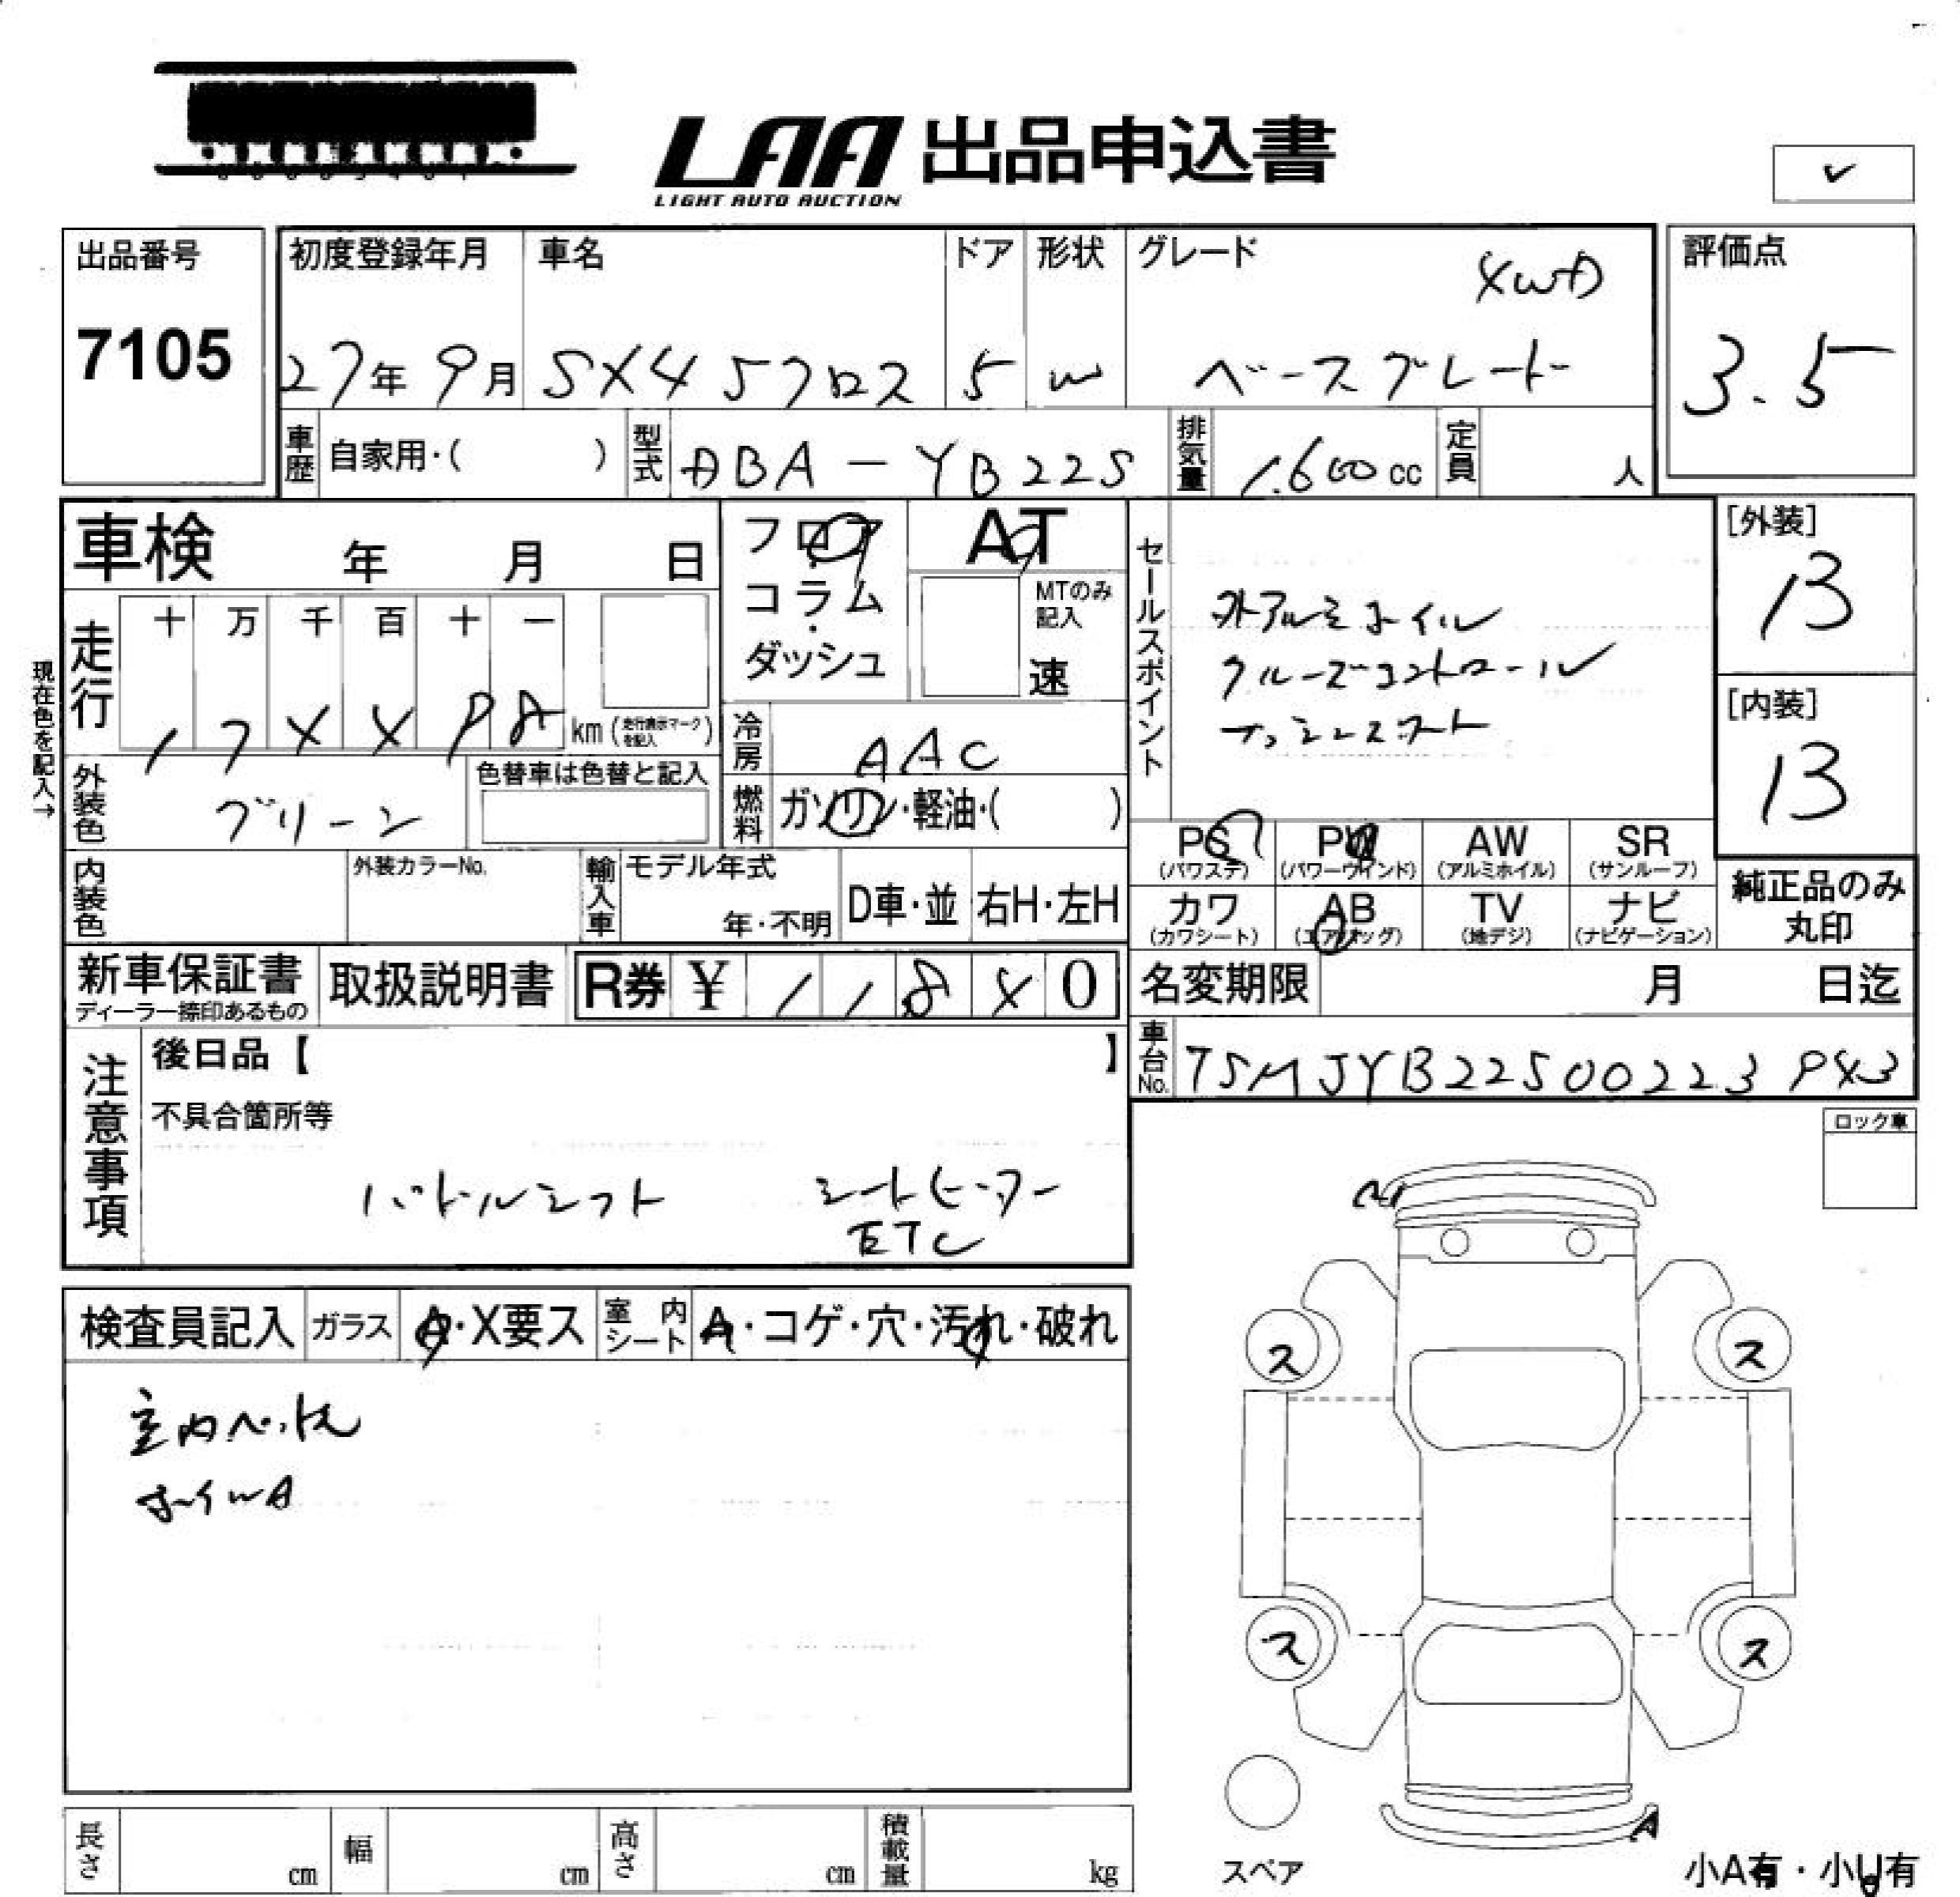 LAA 出品申込書
LIGHT AUTO AUCTION
出品番号
7105
初度登録年月
27年9月
車名
SX4 Sクロス
ドア
5
形状
W
グレード
4WD
ベースグレード
評価点
3.5
車歴 自家用・( )
型式 DBA-YB22S
排気量 1.600cc
定員 人
車検 年 月 日
フロア・コラム・ダッシュ
AT
MTのみ記入
速
セールスポイント
外アルミホイル
クルーズコントロール
プッシュスタート
[外装]
B
[内装]
B
現在色を記入→
走行
十 万 千 百 十 一
km (走行表示マークを記入)
冷房 AAC
外装色 グリーン
色替車は色替と記入
燃料 ガソリン・軽油・( )
内装色
外装カラーNo.
輸入車
モデル年式
年・不明
D車・並
右H・左H
PS (パワステ)
PW (パワーウインド)
AW (アルミホイル)
SR (サンルーフ)
カワ (カワシート)
AB (エアバッグ)
TV (地デジ)
ナビ (ナビゲーション)
純正品のみ丸印
新車保証書
ディーラー捺印あるもの
取扱説明書
R券 ¥ 1 1 8 4 0
名変期限 月 日迄
車台No. TSMJYB22S00223983
注意事項
後日品【 】
不具合箇所等
パドルシフト シートヒーター
ETC
ロック車
検査員記入
ガラス A・X要ス
室内シート A・コゲ・穴・汚れ・破れ
ホイルA
ス
ス
ス
ス
A
スペア
小A有・小U有
長さ cm
幅 cm
高さ cm
積載量 kg